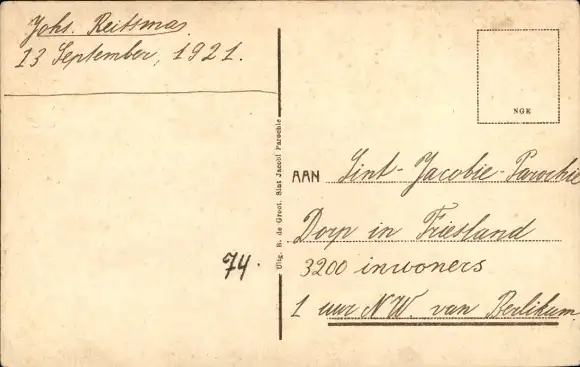 Johs. Reitsma.
13 September, 1921.
74.
Uitg. B. de Groot. Sint Jacobi Parochie
NGK
AAN Sint-Jacobie-Parochie
Dorp in Friesland
3200 inwoners
1 uur N.W. van Berlikum.